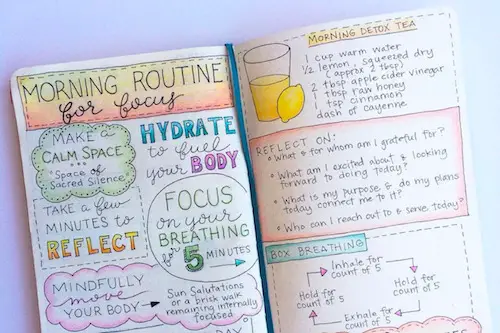 MORNING ROUTINE
for focus
MAKE A
CALM SPACE
Space of
Sacred Silence
HYDRATE
to fuel
your BODY
TAKE A few
MINUTES to
REFLECT
FOCUS
on your
BREATHING
for 5 MINUTES
MINDFULLY
move
YOUR BODY
Sun Salutations
or a brisk walk
remaining internally
focused
DAY
MORNING DETOX TEA
1 cup warm water
1/2 lemon, squeezed dry
(approx 2 tbsp)
2 tbsp apple cider vinegar
1 tbsp raw honey
1 tsp cinnamon
dash of cayenne
REFLECT ON:
• What & for whom am I grateful for?
• What am I excited about & looking
forward to doing today?
• What is my purpose & do my plans
today connect me to it?
• Who can I reach out to & serve today?
BOX BREATHING
Inhale for
count of 5
Hold for
count of 5
Hold for
count of 5
Exhale for
count of 5